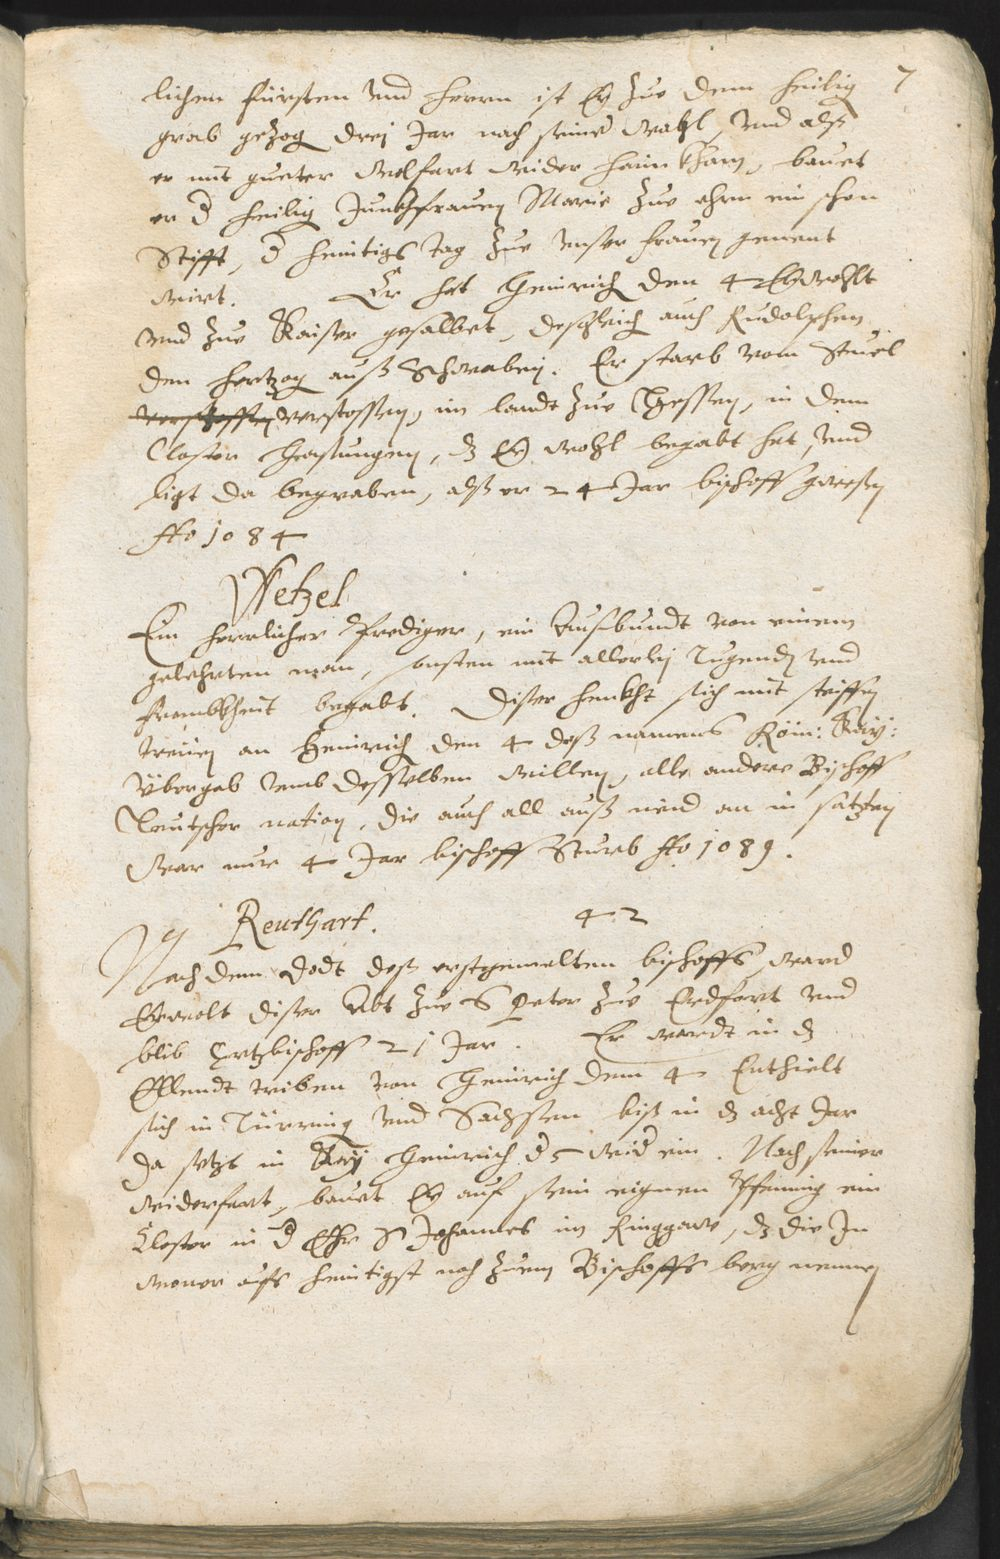 7
lichen fürsten und herrn ist Er zue dem heilig
grab gezog drei Jar nach seiner Wahl, und alß
er mit gueter Wolfart Wider haim kham, bauet
er d heilig Junkhfrauen Marie zue ehrn ein schon
Stifft, d heintigs tag zue unser frauen genent
Wirt. Er hat Heinrich den 4 Erwöhlt
und zue Kaiser gesalbet, desgleich auch Rudolphen
den hertzog auß Schwaben. Er starb vom Stuel
verstossen, im landt zue Hessen, in dem
Closter Hasungen, dz Er wohl begabt hat, und
ligt da begraben, alß er 24 Jar bischoff gwesen
Ao 1084
Wetzel
Ein herrlicher Prediger, ein Außbundt von einem
gelehrten man, sonsten mit allerleÿ Tugend und
frombkheit begabt. Diser henkht sich mit steiffen
treüen an Heinrich den 4 deß namens Röm: Kaÿ:
Übergab umb desselben Willen, alle andere Bischoff
Teutscher nation, die auch all auß und an in satzten
War nur 4 Jar bischoff Starb Ao 1089.
Reuthart. 42
Nach dem Dodt deß erstgemelten bischoffs, ward
Erwelt diser Abt zue S Peter zue Erdfort und
blib Ertzbischoff 21 Jar. Er wardt in dz
Ellendt triben von Heinrich dem 4 Enthielt
sich in Türring und Sachssen biß in dz acht Jar
da setzt in Kaÿ Heinrich d 5 wid ein. Nach seiner
Widerfart, bauet Er auf sein eignen Pfennig ein
Closter in d Ehr S Johannes im Ringgaw, dz die In
woner aufs heintigst noch zuem Bischoffs berg nennen